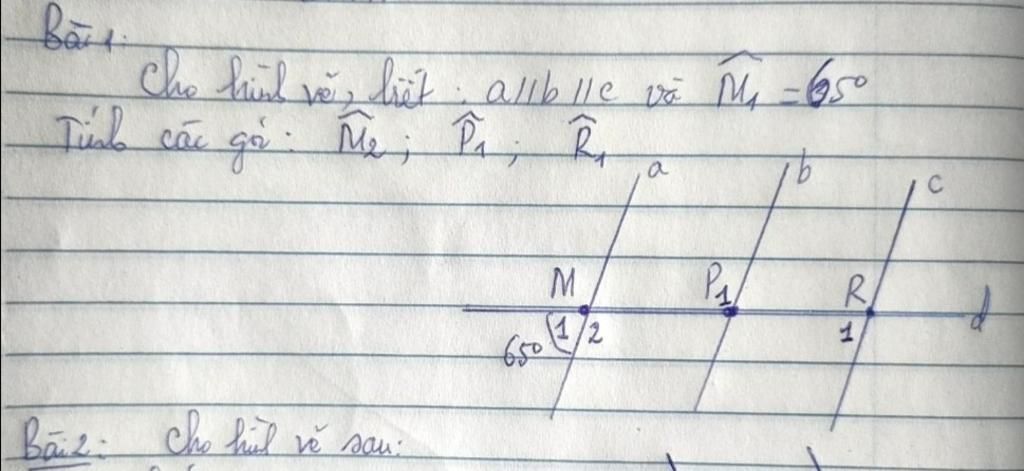 Bài 1:
Cho hình vẽ, biết : a//b//c và M̂₁ = 65°
Tính các góc : M̂₂ ; P̂₁ ; R̂₁
a b c
M P 1 R d
1 2 1
65°
Bài 2: Cho hình vẽ sau: